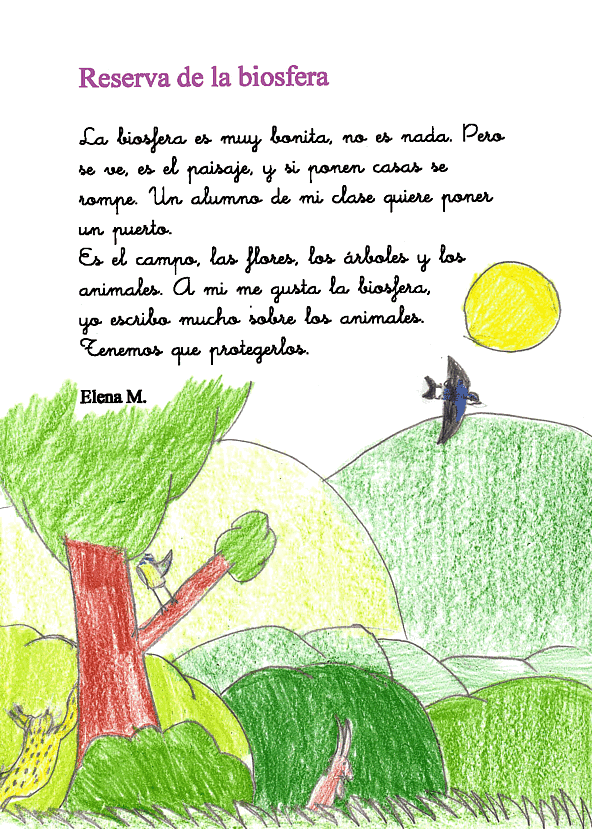 Reserva de la biosfera
La biosfera es muy bonita, no es nada. Pero
se ve, es el paisaje, y si ponen casas se
rompe. Un alumno de mi clase quiere poner
un puerto.
Es el campo, las flores, los árboles y los
animales. A mi me gusta la biosfera,
yo escribo mucho sobre los animales.
Tenemos que protegerlos.
Elena M.